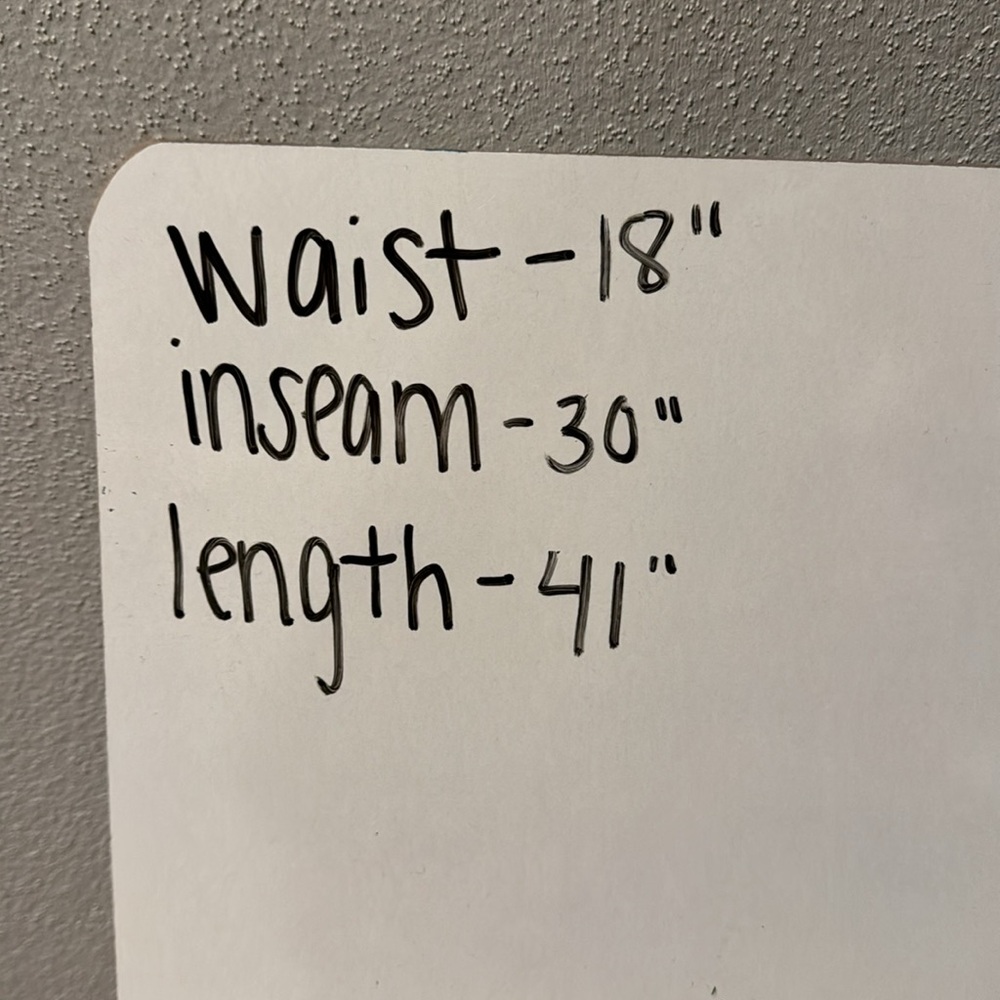 waist - 18"
inseam - 30"
length - 41"